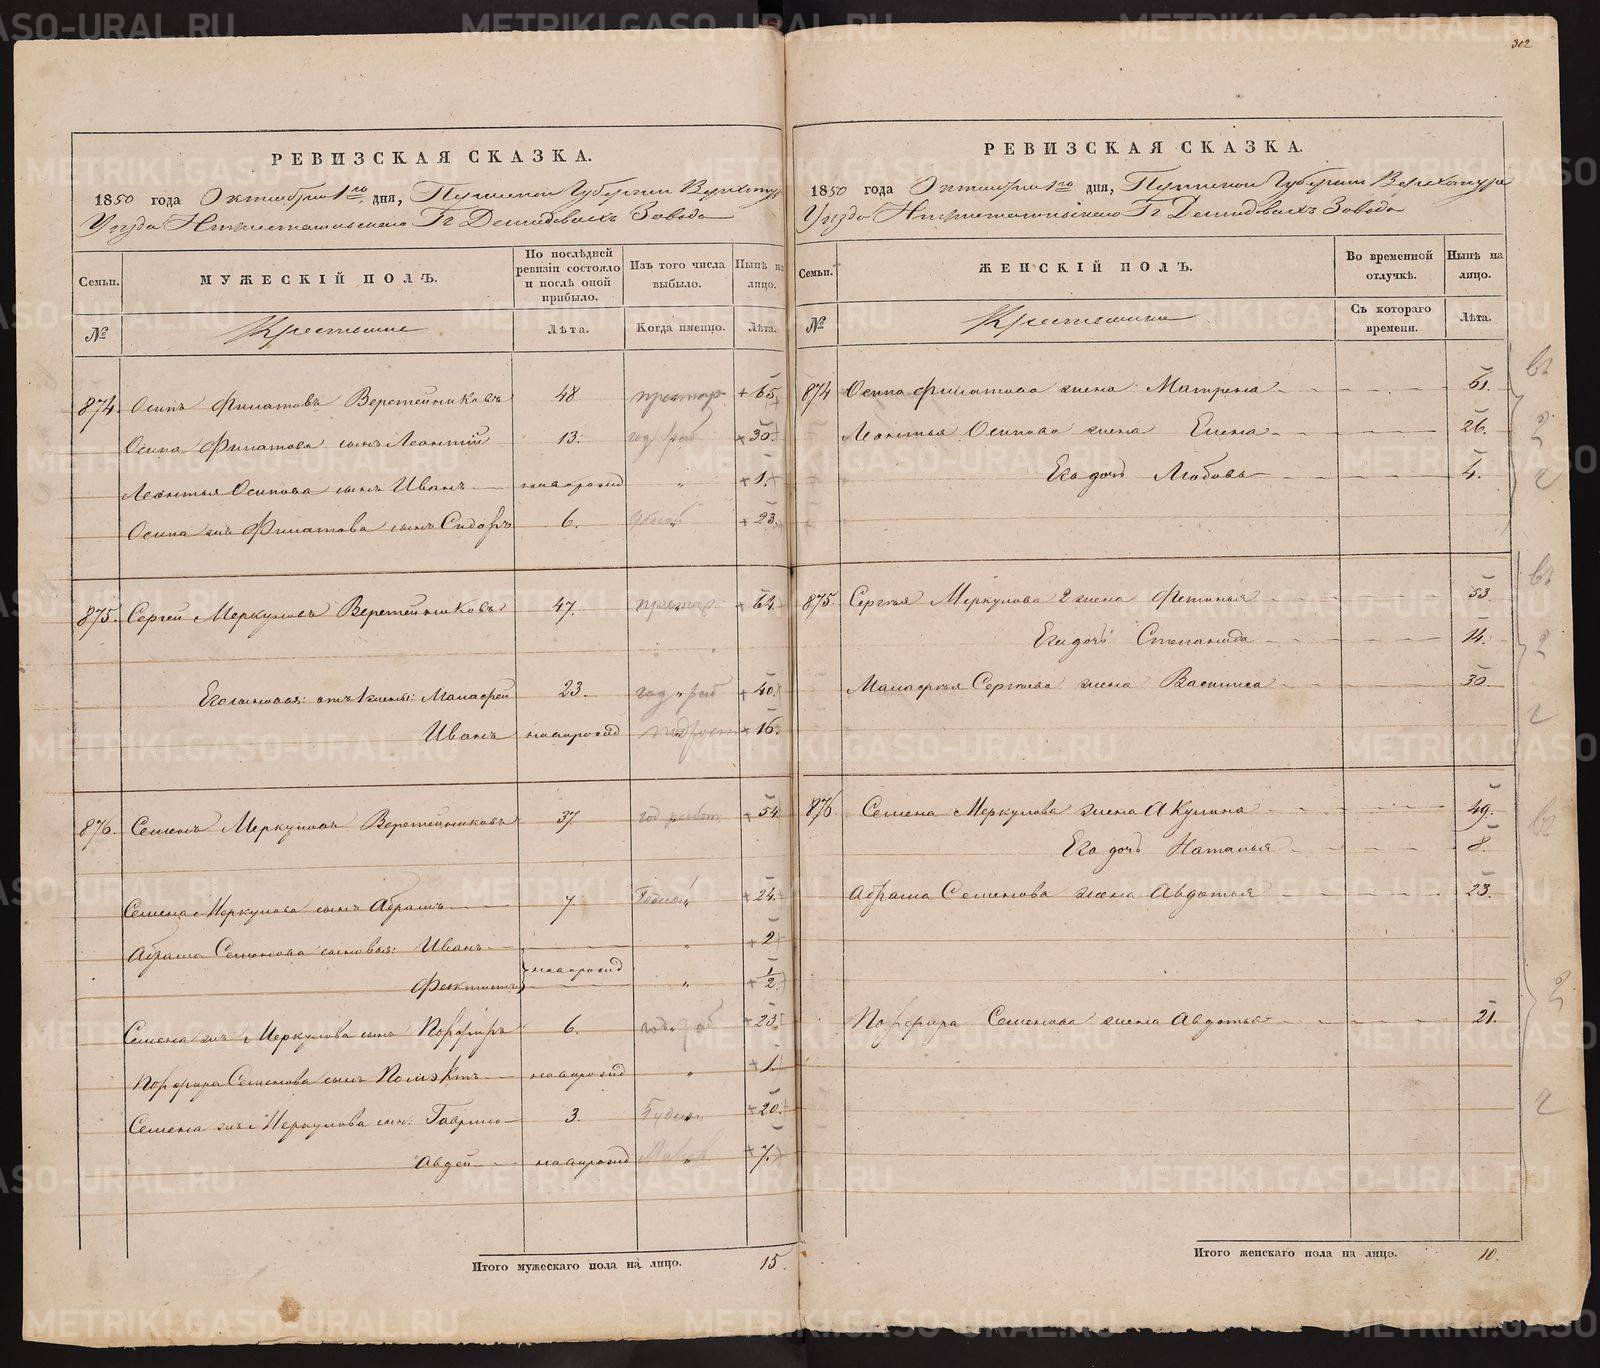 302
РЕВИЗСКАЯ СКАЗКА.
1850 года Октября 1го дня, Пермской Губерніи Верхотур
Уѣзда Нижнетагильскаго Гг Демидовыхъ Завода
Семьи. МУЖЕСКІЙ ПОЛЪ. По послѣдней ревизіи состояло и послѣ оной прибыло. Изъ того числа выбыло. Нынѣ на лицо.
№ Крестьяне Лѣта. Когда именно. Лѣта.
874. Осипъ Филатовъ Веретейниковъ 48 престар + 65
Осипа Филатова сынъ Леонтій 13. год раб + 30.
Леонтья Осипова сынъ Иванъ новорожд " + 1.
Осипа жъ Филатова сынъ Сидоръ 6. + 23.
875. Сергей Меркуловъ Веретейниковъ 47. престар + 64.
Его сыновья: отъ 1 жены: Малафей 23. год " раб + 40.
Иванъ новорожд подрост + 16.
876. Семенъ Меркуловъ Веретейниковъ 37. год работ + 54
Семена Меркулова сынъ Абрамъ 7. Годной + 24.
Абрама Семенова сыновья: Иванъ " + 2
Феоктистъ новорожд " + 1/2
Семена жъ Меркулова сынъ Порфиръ 6. год раб + 23.
Порфира Семенова сынъ Полиэктъ новорожд " + 1.
Семена жъ Меркулова сын: Гаврило 3. + 20.
Авдей новорожд " + 7.
Итого мужескаго пола на лицо. 15.
РЕВИЗСКАЯ СКАЗКА.
1850 года Октября 1го дня, Пермской Губерніи Верхотур
Уѣзда Нижнетагильскаго Гг Демидовыхъ Завода
Семьи. ЖЕНСКІЙ ПОЛЪ. Во временной отлучкѣ. Нынѣ на лицо.
№ Крестьянки Съ котораго времени. Лѣта.
874 Осипа Филатова жена Матрена 61.
Леонтья Осипова жена Елена 26.
Его дочь Любовь 4.
875. Сергѣя Меркулова 2 жена Фетинья 53.
Его дочь Степанида 14.
Малафея Сергѣева жена Василиса 30.
876 Семена Меркулова жена Акулина 49.
Его дочь Наталья 8.
Абрама Семенова жена Авдотья 23.
Порфира Семенова жена Авдотья 21.
Итого женскаго пола на лицо. 10.
METRIKI.GASO-URAL.RU